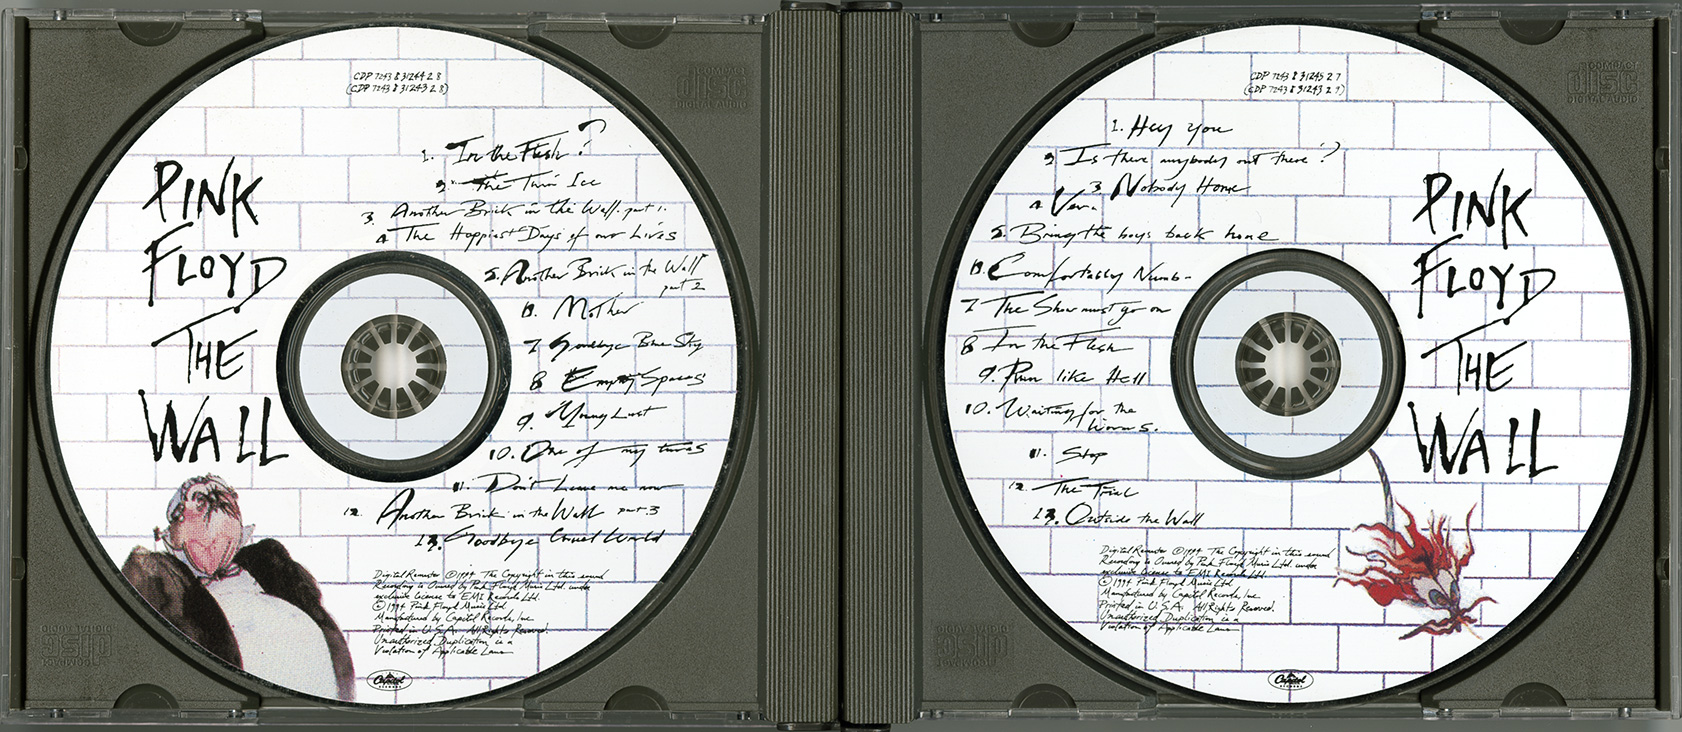 CDP 7243 8 31244 2 8
(CDP 7243 8 31243 2 9)
PINK
FLOYD
THE
WALL
1. In the Flesh?
2. The Thin Ice
3. Another Brick in the Wall. part 1.
4. The Happiest Days of our Lives
5. Another Brick in the Wall
part 2
6. Mother
7 Goodbye Blue Sky
8 Empty Spaces
9. Young Lust
10. One of my turns
11. Don't Leave me now
12. Another Brick in the Wall part 3
13. Goodbye Cruel World
Digital Remaster ℗1994 The Copyright in this sound
Recording is Owned by Pink Floyd Music Ltd. under
exclusive license to EMI Records Ltd.
©1994 Pink Floyd Music Ltd.
Manufactured by Capitol Records, Inc
Printed in U.S.A. All Rights Reserved.
Unauthorized Duplication is a
Violation of Applicable Laws
Capitol
RECORDS
COMPACT
DISC
DIGITAL AUDIO
COMPACT
DISC
DIGITAL AUDIO
CDP 7243 8 31245 2 7
(CDP 7243 8 31243 2 9)
1. Hey you
2 Is there anybody out there?
3. Nobody Home
4 Vera
5. Bring the boys back home
6. Comfortably Numb
7 The Show must go on
8 In the Flesh
9. Run like Hell
10. Waiting for the
Worms.
11. Stop
12. The Trial
13. Outside the Wall
PINK
FLOYD
THE
WALL
Digital Remaster ℗1994 The Copyright in this sound
Recording is Owned by Pink Floyd Music Ltd. under
exclusive license to EMI Records Ltd.
©1994 Pink Floyd Music Ltd.
Manufactured by Capitol Records, Inc
Printed in U.S.A. All Rights Reserved.
Unauthorized Duplication is a
Violation of Applicable Laws
Capitol
RECORDS
COMPACT
DISC
DIGITAL AUDIO
COMPACT
DISC
DIGITAL AUDIO